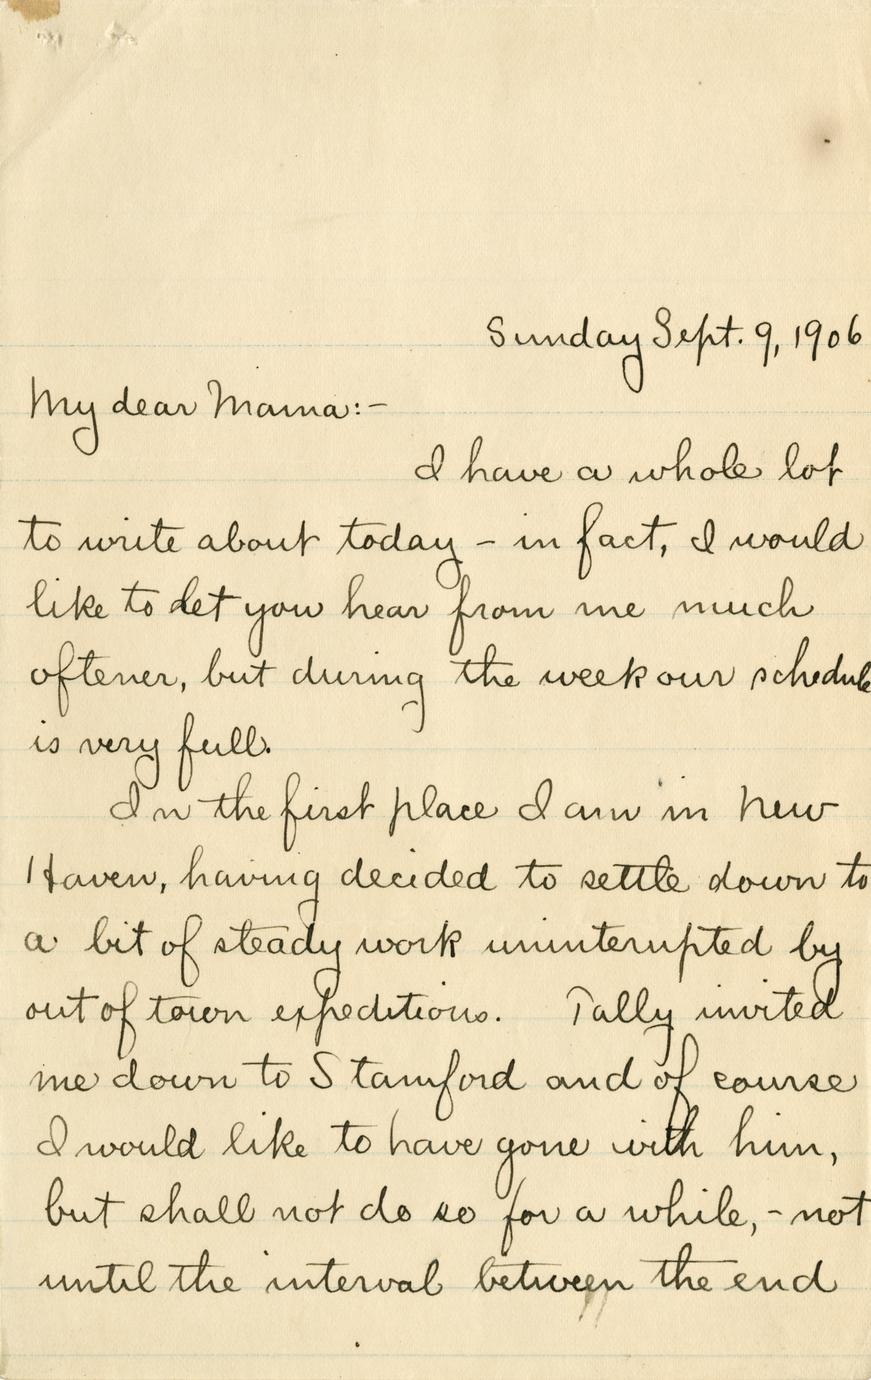 Sunday Sept. 9, 1906
My dear Mama:-
I have a whole lot
to write about today - in fact, I would
like to let you hear from me much
oftener, but during the week our schedule
is very full.
In the first place I am in New
Haven, having decided to settle down to
a bit of steady work uninterupted by
out of town expeditions. Tally invited
me down to Stamford and of course
I would like to have gone with him,
but shall not do so for a while, - not
until the interval between the end